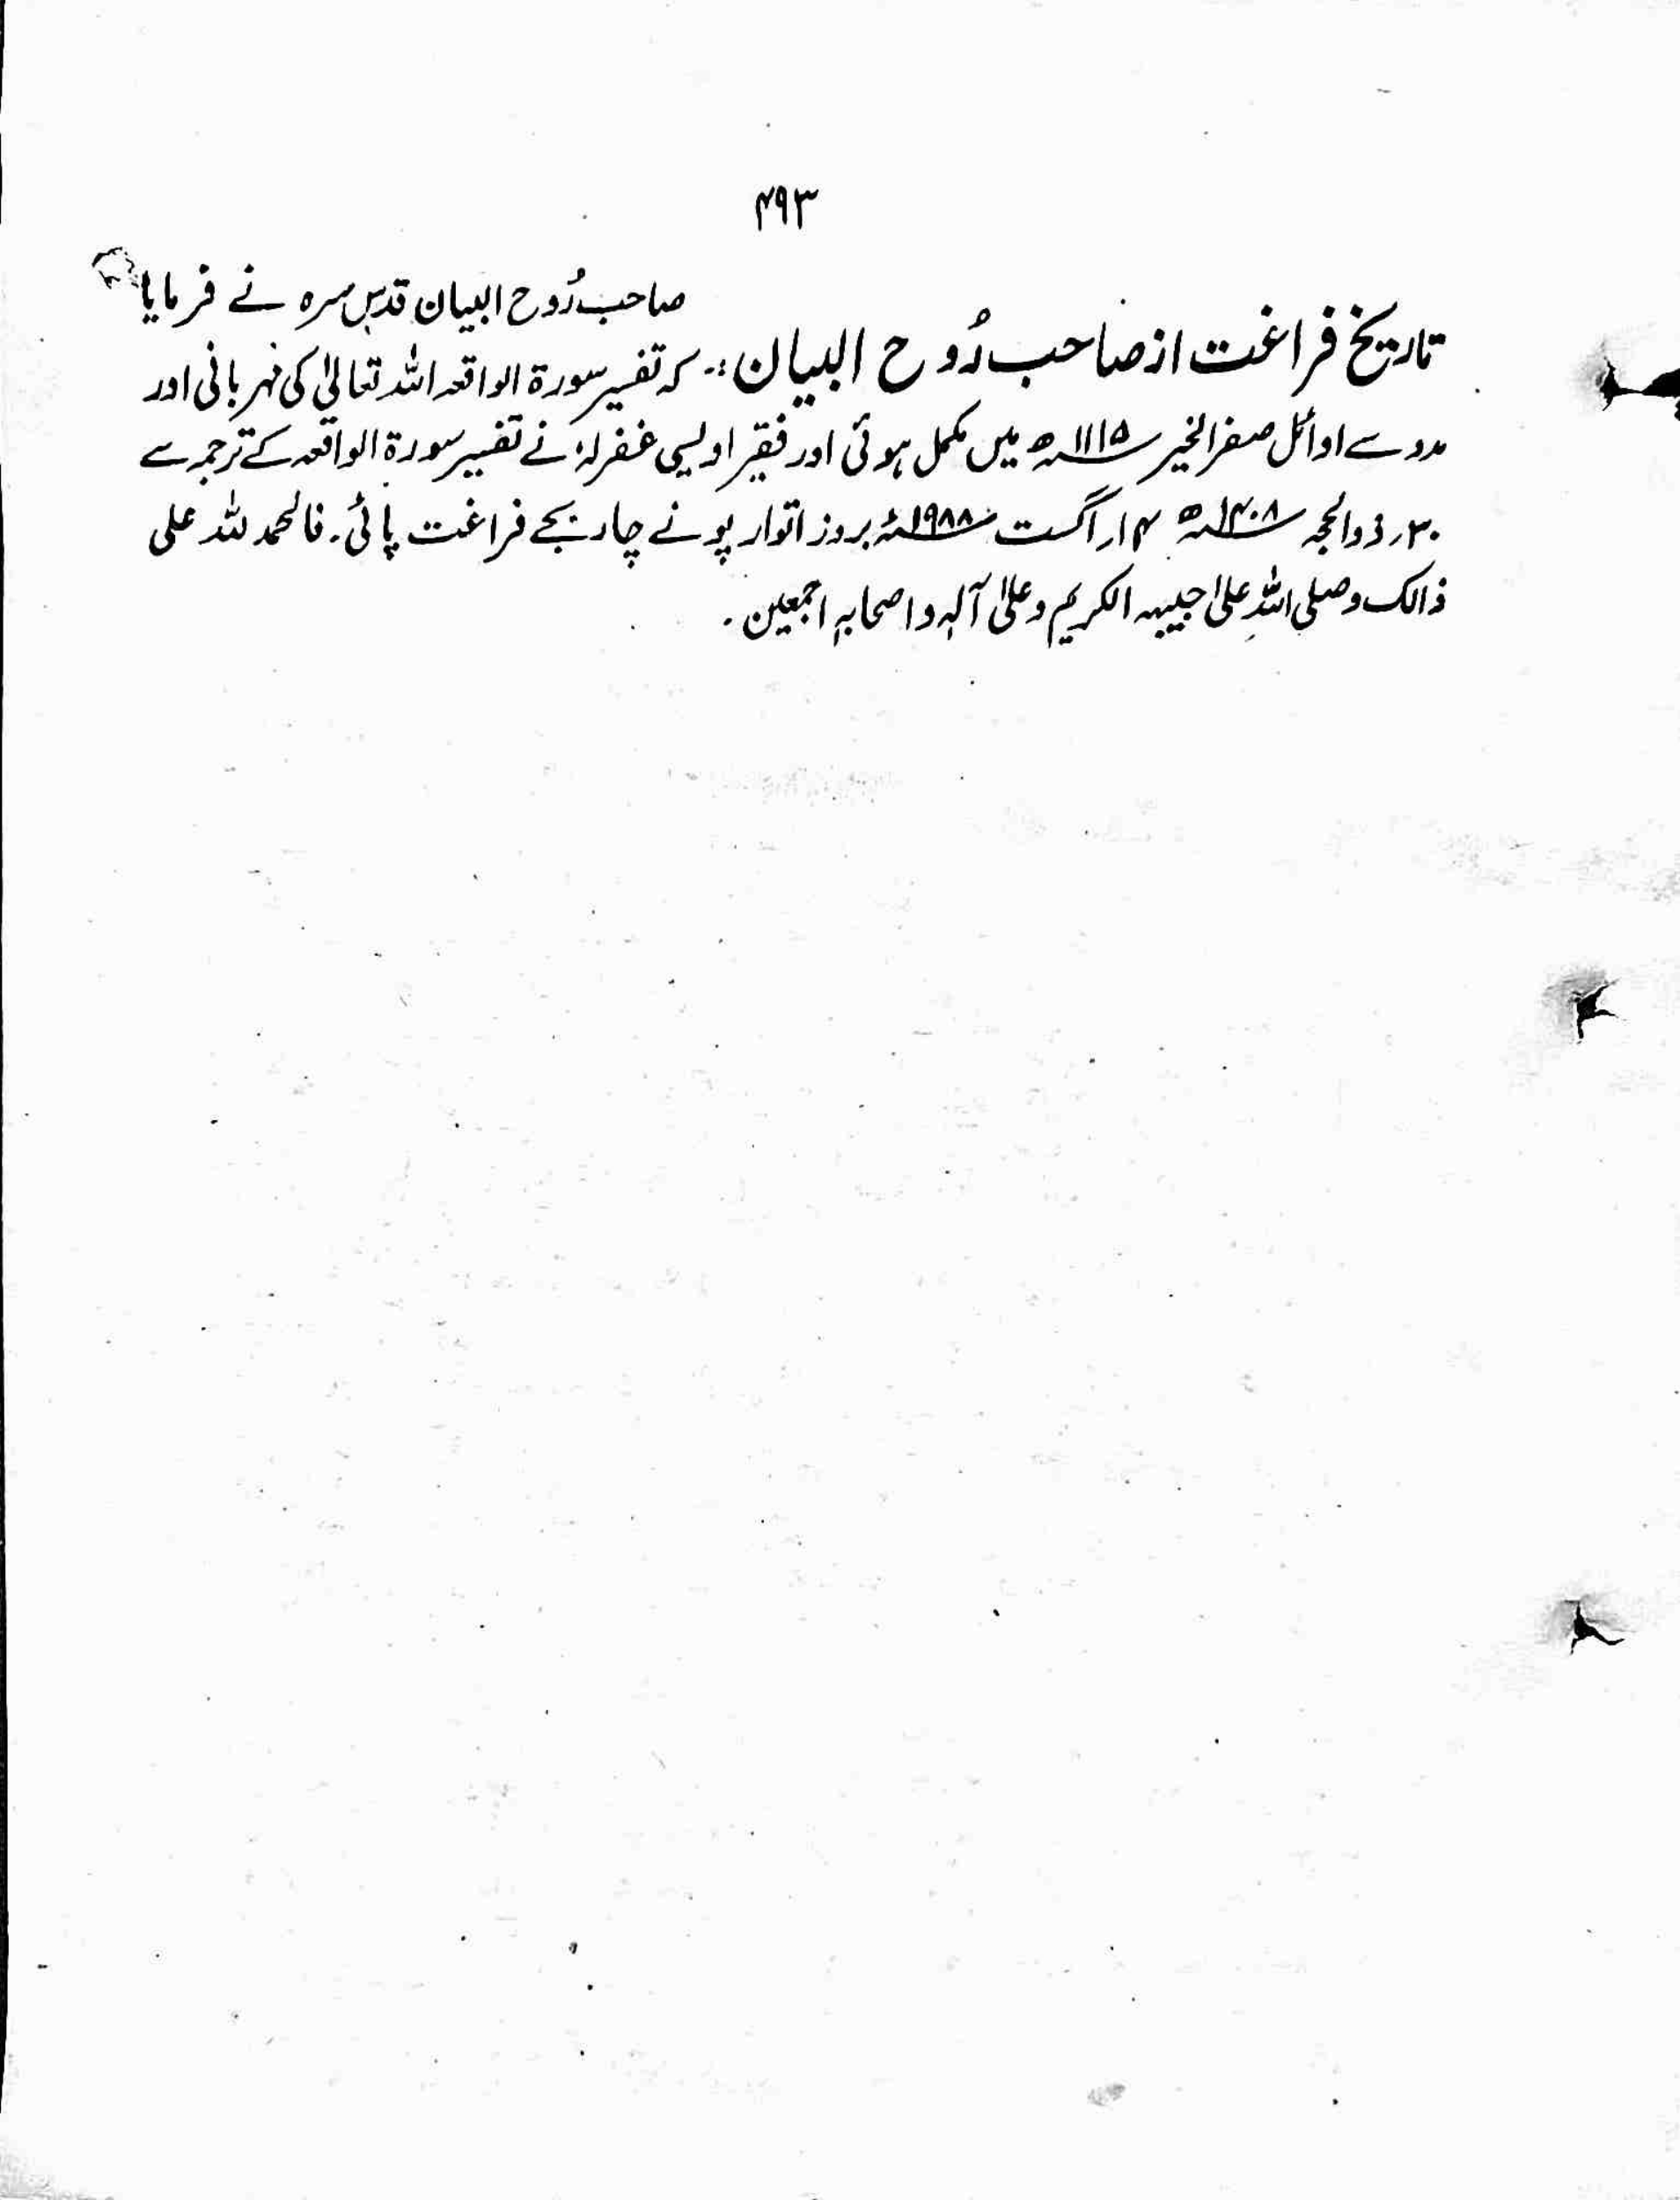 ۴۹۳
تاریخ فراغت از صاحب رُوح البیان :۔ صاحب رُوح البیان قدس سرہ نے فرمایا
کہ تفسیر سورۃ الواقعہ اللہ تعالیٰ کی مہربانی اور
مدد سے اوائل صفر الخیر ۱۱۱۵ھ میں مکمل ہوئی اور فقیر اویسی غفرلہٗ نے تفسیر سورۃ الواقعہ کے ترجمہ سے
۳۰ر ذوالحجہ ۱۴۰۸ھ ۱۴ر اگست ۱۹۸۸ء بروز اتوار پونے چار بجے فراغت پائی۔ فالحمد للہ علی
ذالک وصلی اللہ علیٰ حبیبہ الکریم وعلیٰ آلہٖ واصحابہٖ اجمعین۔